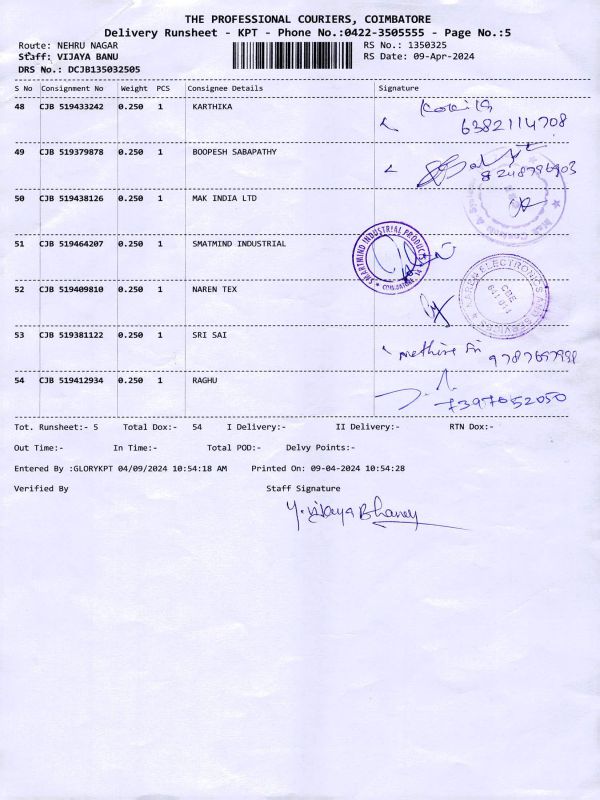 THE PROFESSIONAL COURIERS, COIMBATORE
Delivery Runsheet - KPT - Phone No.:0422-3505555 - Page No.:5
Route: NEHRU NAGAR RS No.: 1350325
Staff: VIJAYA BANU RS Date: 09-Apr-2024
DRS No.: DCJB135032505
S No Consignment No Weight PCS Consignee Details Signature
48 CJB 519433242 0.250 1 KARTHIKA
6382114708
49 CJB 519379878 0.250 1 BOOPESH SABAPATHY
8248796903
50 CJB 519438126 0.250 1 MAK INDIA LTD
51 CJB 519464207 0.250 1 SMATMIND INDUSTRIAL
SMARTMIND INDUSTRIAL PRODUCTS
COIMBATORE
52 CJB 519409810 0.250 1 NAREN TEX
NAREN ELECTRONICS AND SERVICES
CBE
53 CJB 519381122 0.250 1 SRI SAI
54 CJB 519412934 0.250 1 RAGHU
7397652050
Tot. Runsheet:- 5 Total Dox:- 54 I Delivery:- II Delivery:- RTN Dox:-
Out Time:- In Time:- Total POD:- Delvy Points:-
Entered By :GLORYKPT 04/09/2024 10:54:18 AM Printed On: 09-04-2024 10:54:28
Verified By Staff Signature